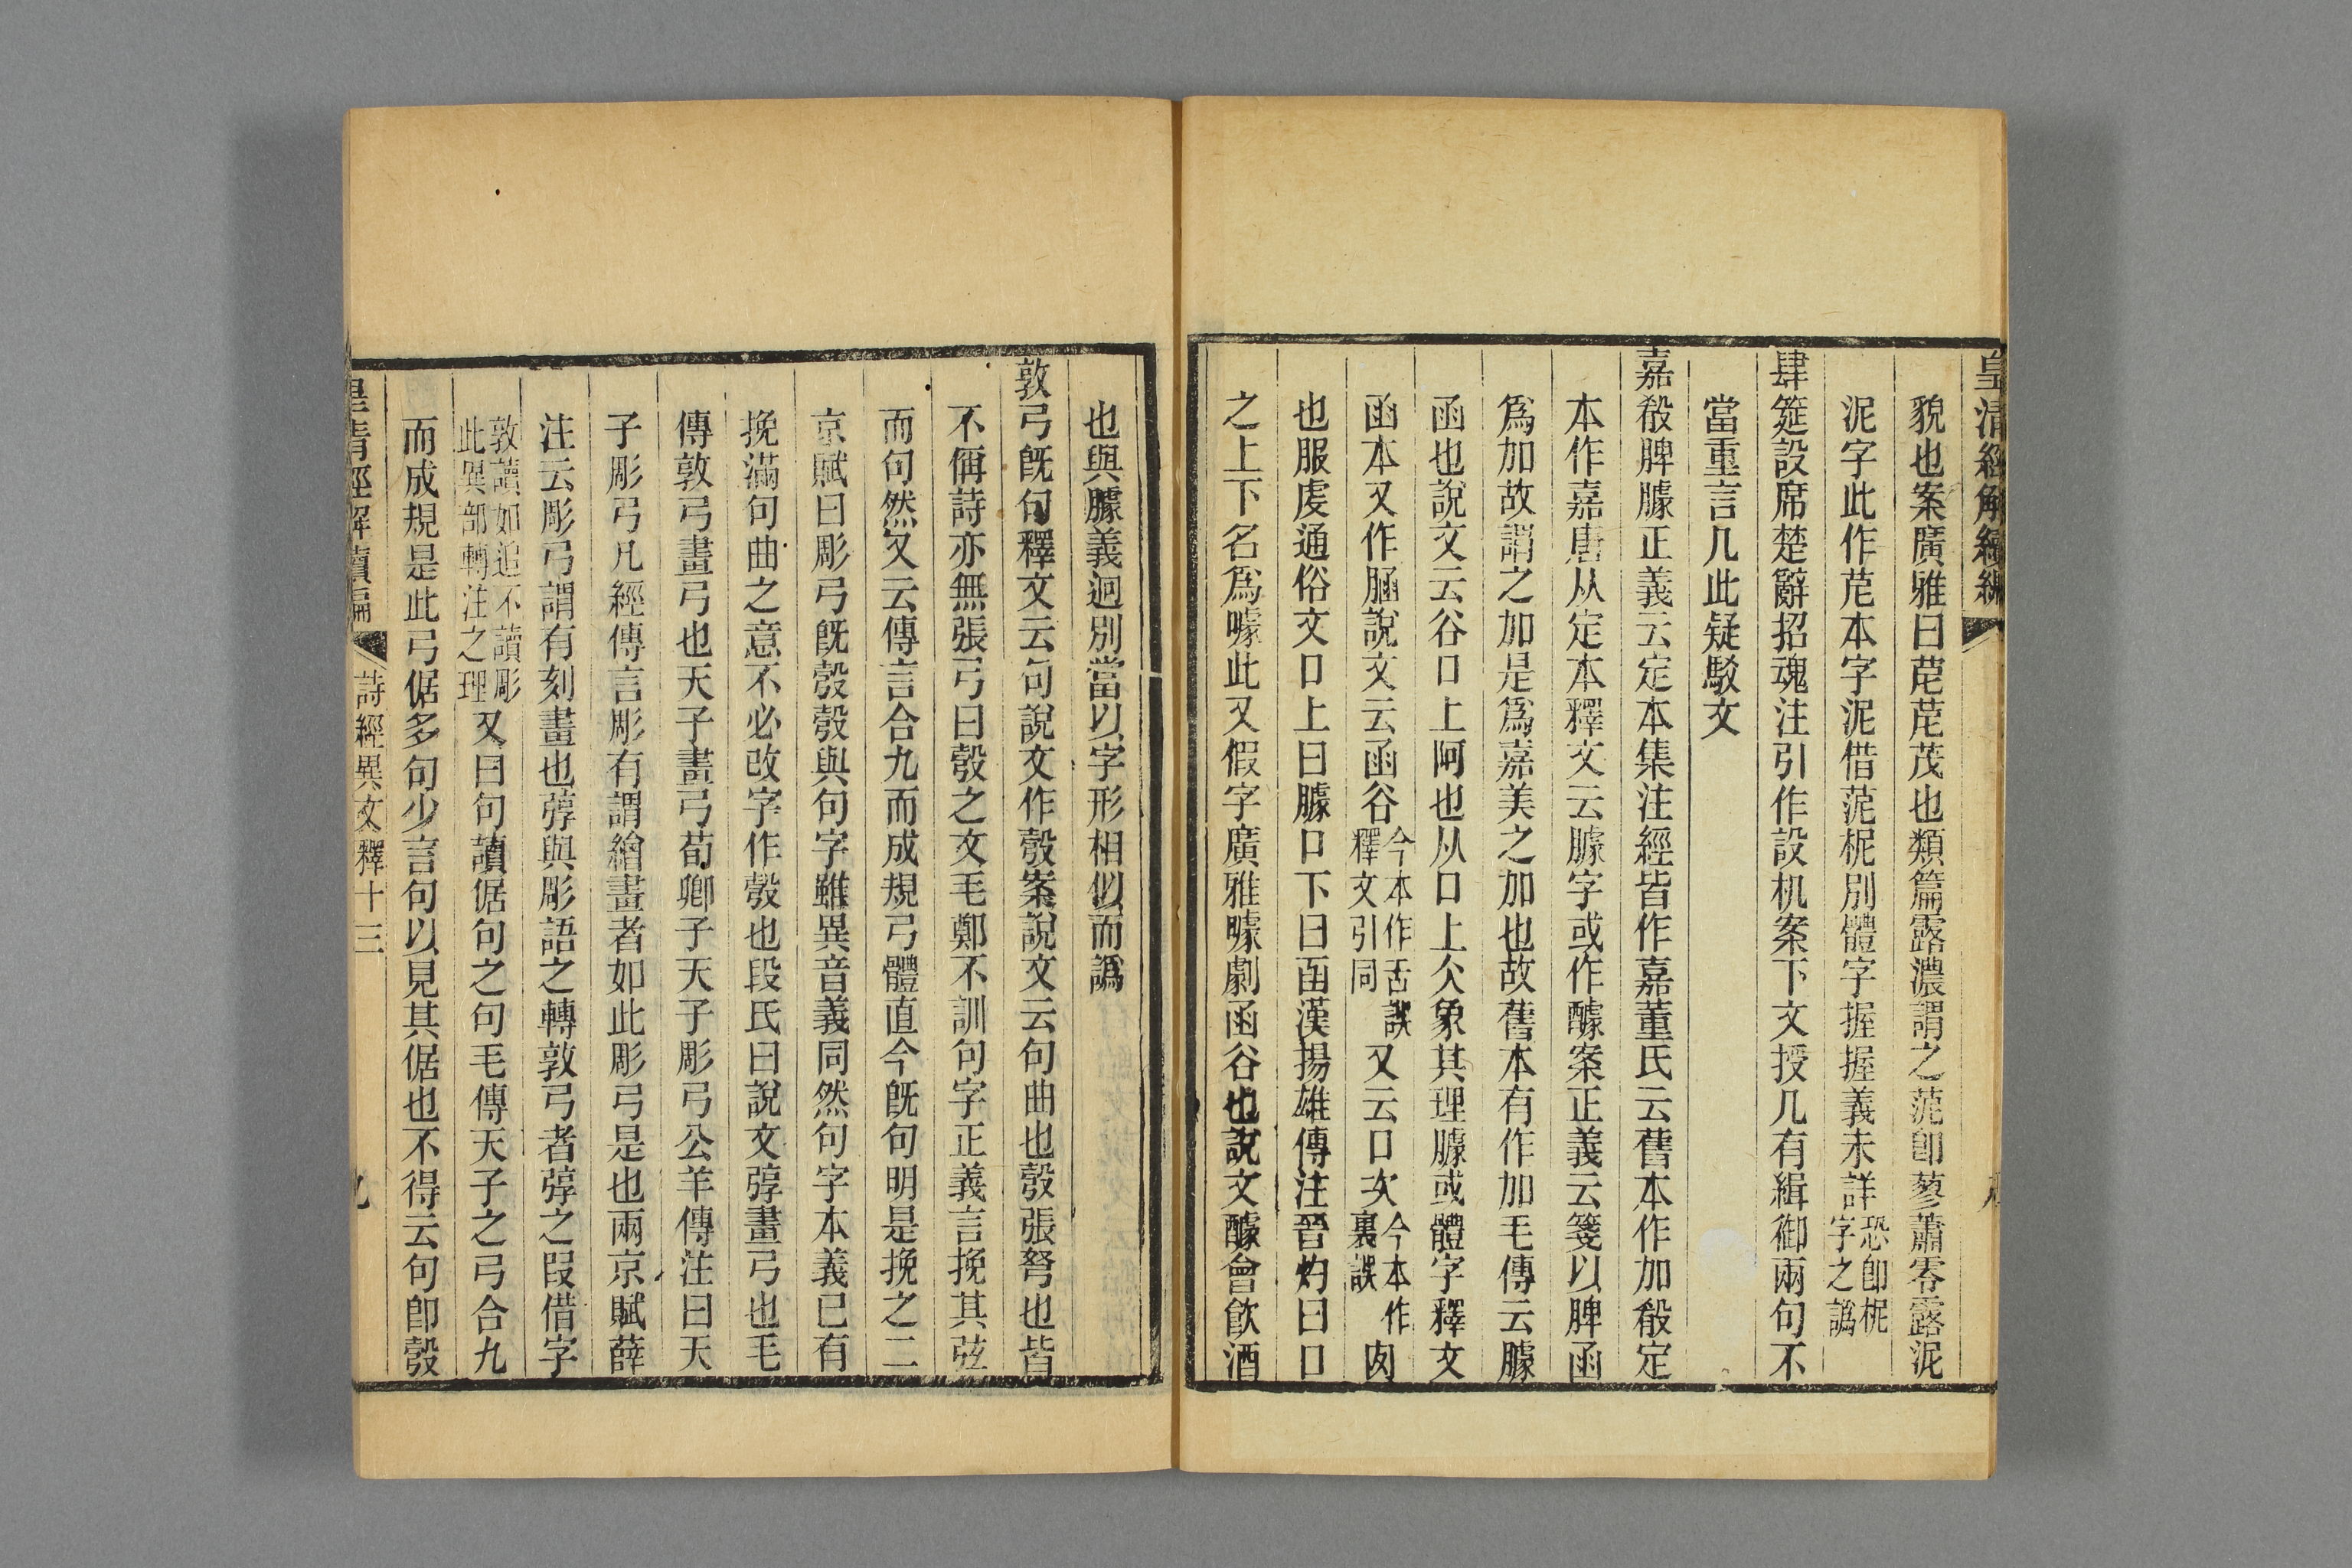 皇清經解續編
貌也案廣雅曰苨苨茂也類篇露濃謂之萀卽蓼蕭零露泥
泥字此作苨本字泥借萀柅別體字握握義未詳恐卽柅字之譌
肆筵設席楚辭招魂注引作設机案下文授几有緝御兩句不
當重言几此疑駁文
嘉殽脾臄正義云定本集注經皆作嘉董氏云舊本作加殽定
本作嘉唐从定本釋文云臄字或作醵案正義云箋以脾函
爲加故謂之加是爲嘉美之加也故舊本有作加毛傳云臄
函也說文云谷口上阿也从口上仌象其理臄或體字釋文
函本又作䐄說文云函谷今本作舌誤釋文引同又云口次今本作裏誤肉
也服虔通俗文口上曰臄口下曰函漢揚雄傳注晉灼曰口
之上下名爲噱此又假字廣雅噱劇函谷也說文醵會飮酒
也與臄義迥別當以字形相似而譌
敦弓旣句釋文云句說文作彀案說文云句曲也彀張弩也皆
不偁詩亦無張弓曰彀之文毛鄭不訓句字正義言挽其弦
而句然又云傳言合九而成規弓體直今旣句明是挽之二
京賦曰彫弓旣彀彀與句字雖異音義同然句字本義已有
挽滿句曲之意不必改字作彀也段氏曰說文弴畫弓也毛
傳敦弓畫弓也天子畫弓荀卿子天子彫弓公羊傳注曰天
子彫弓凡經傳言彫有謂繪畫者如此彫弓是也兩京賦薛
注云彫弓謂有刻畫也弴與彫語之轉敦弓者弴之叚借字
敦讀如追不讀彫此異部轉注之理又曰句讀倨句之句毛傳天子之弓合九
而成規是此弓倨多句少言句以見其倨也不得云句卽彀
皇清經解續編 詩經異文釋十三 九